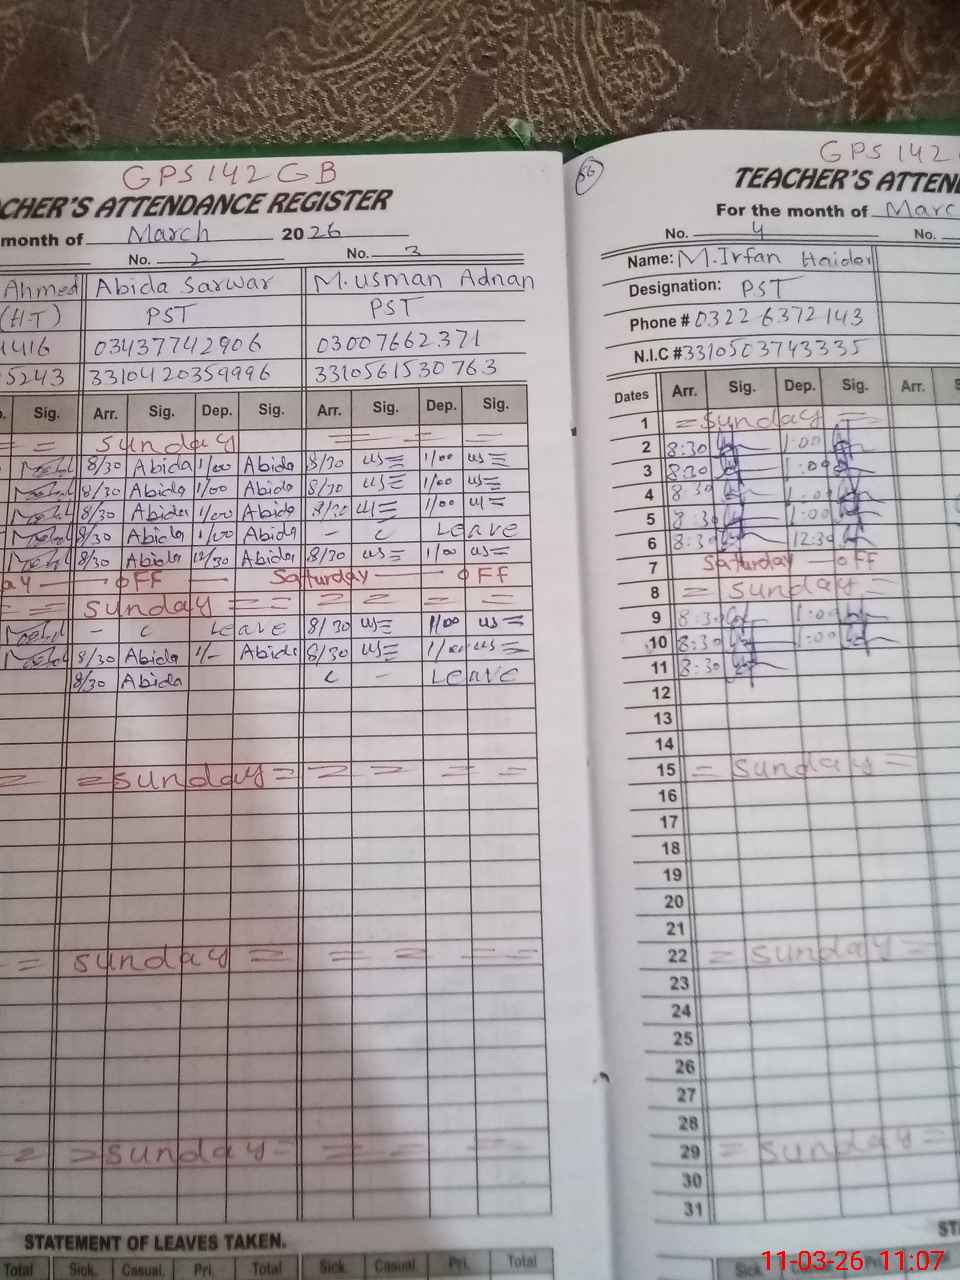 GPS 142 GB
CHER'S ATTENDANCE REGISTER
month of March 2026
No. 2 No. 3
Ahmed Abida Sarwar M. usman Adnan
(H-T) PST PST
1416 03437742906 03007662371
5243 3310420359996 3310561530763
Sig. Arr. Sig. Dep. Sig. Arr. Sig. Dep. Sig.
= = sunday = = = =
8/30 Abida 1/00 Abida 8/30 us= 1/00 us=
8/30 Abida 1/00 Abida 8/30 us= 1/00 us=
8/30 Abida 1/00 Abida 8/30 us= 1/00 us=
8/30 Abida 1/00 Abida - c Leave
8/30 Abida 12/30 Abida 8/30 us= 1/00 us=
ay — OFF — Satturday — OFF
= = sunday = = = = = =
- c Leave 8/30 us= 1/00 us=
8/30 Abida 1/- Abida 8/30 us= 1/00 us=
8/30 Abida c - Leave
= = sunday = = = = =
= sunday = = = = =
= = sunday = = = =
STATEMENT OF LEAVES TAKEN.
Total Sick. Casual. Pri. Total Sick. Casual. Pri. Total
56
GPS 142
TEACHER'S ATTEN
For the month of Marc
No. 4 No.
Name: M. Irfan Haider
Designation: PST
Phone # 0322 6372143
N.I.C # 3310503743335
Dates Arr. Sig. Dep. Sig. Arr. S
1 = sunday =
2 8:30 1:00
3 8:30 1:00
4 8:30 1:00
5 8:30 1:00
6 8:30 12:30
7 Satturday — OFF
8 = sunday =
9 8:30 1:00
10 8:30 1:00
11 8:30
12
13
14
15 = sunday =
16
17
18
19
20
21
22 = sunday =
23
24
25
26
27
28
29 = sunday =
30
31
ST
Sick
11-03-26 11:07